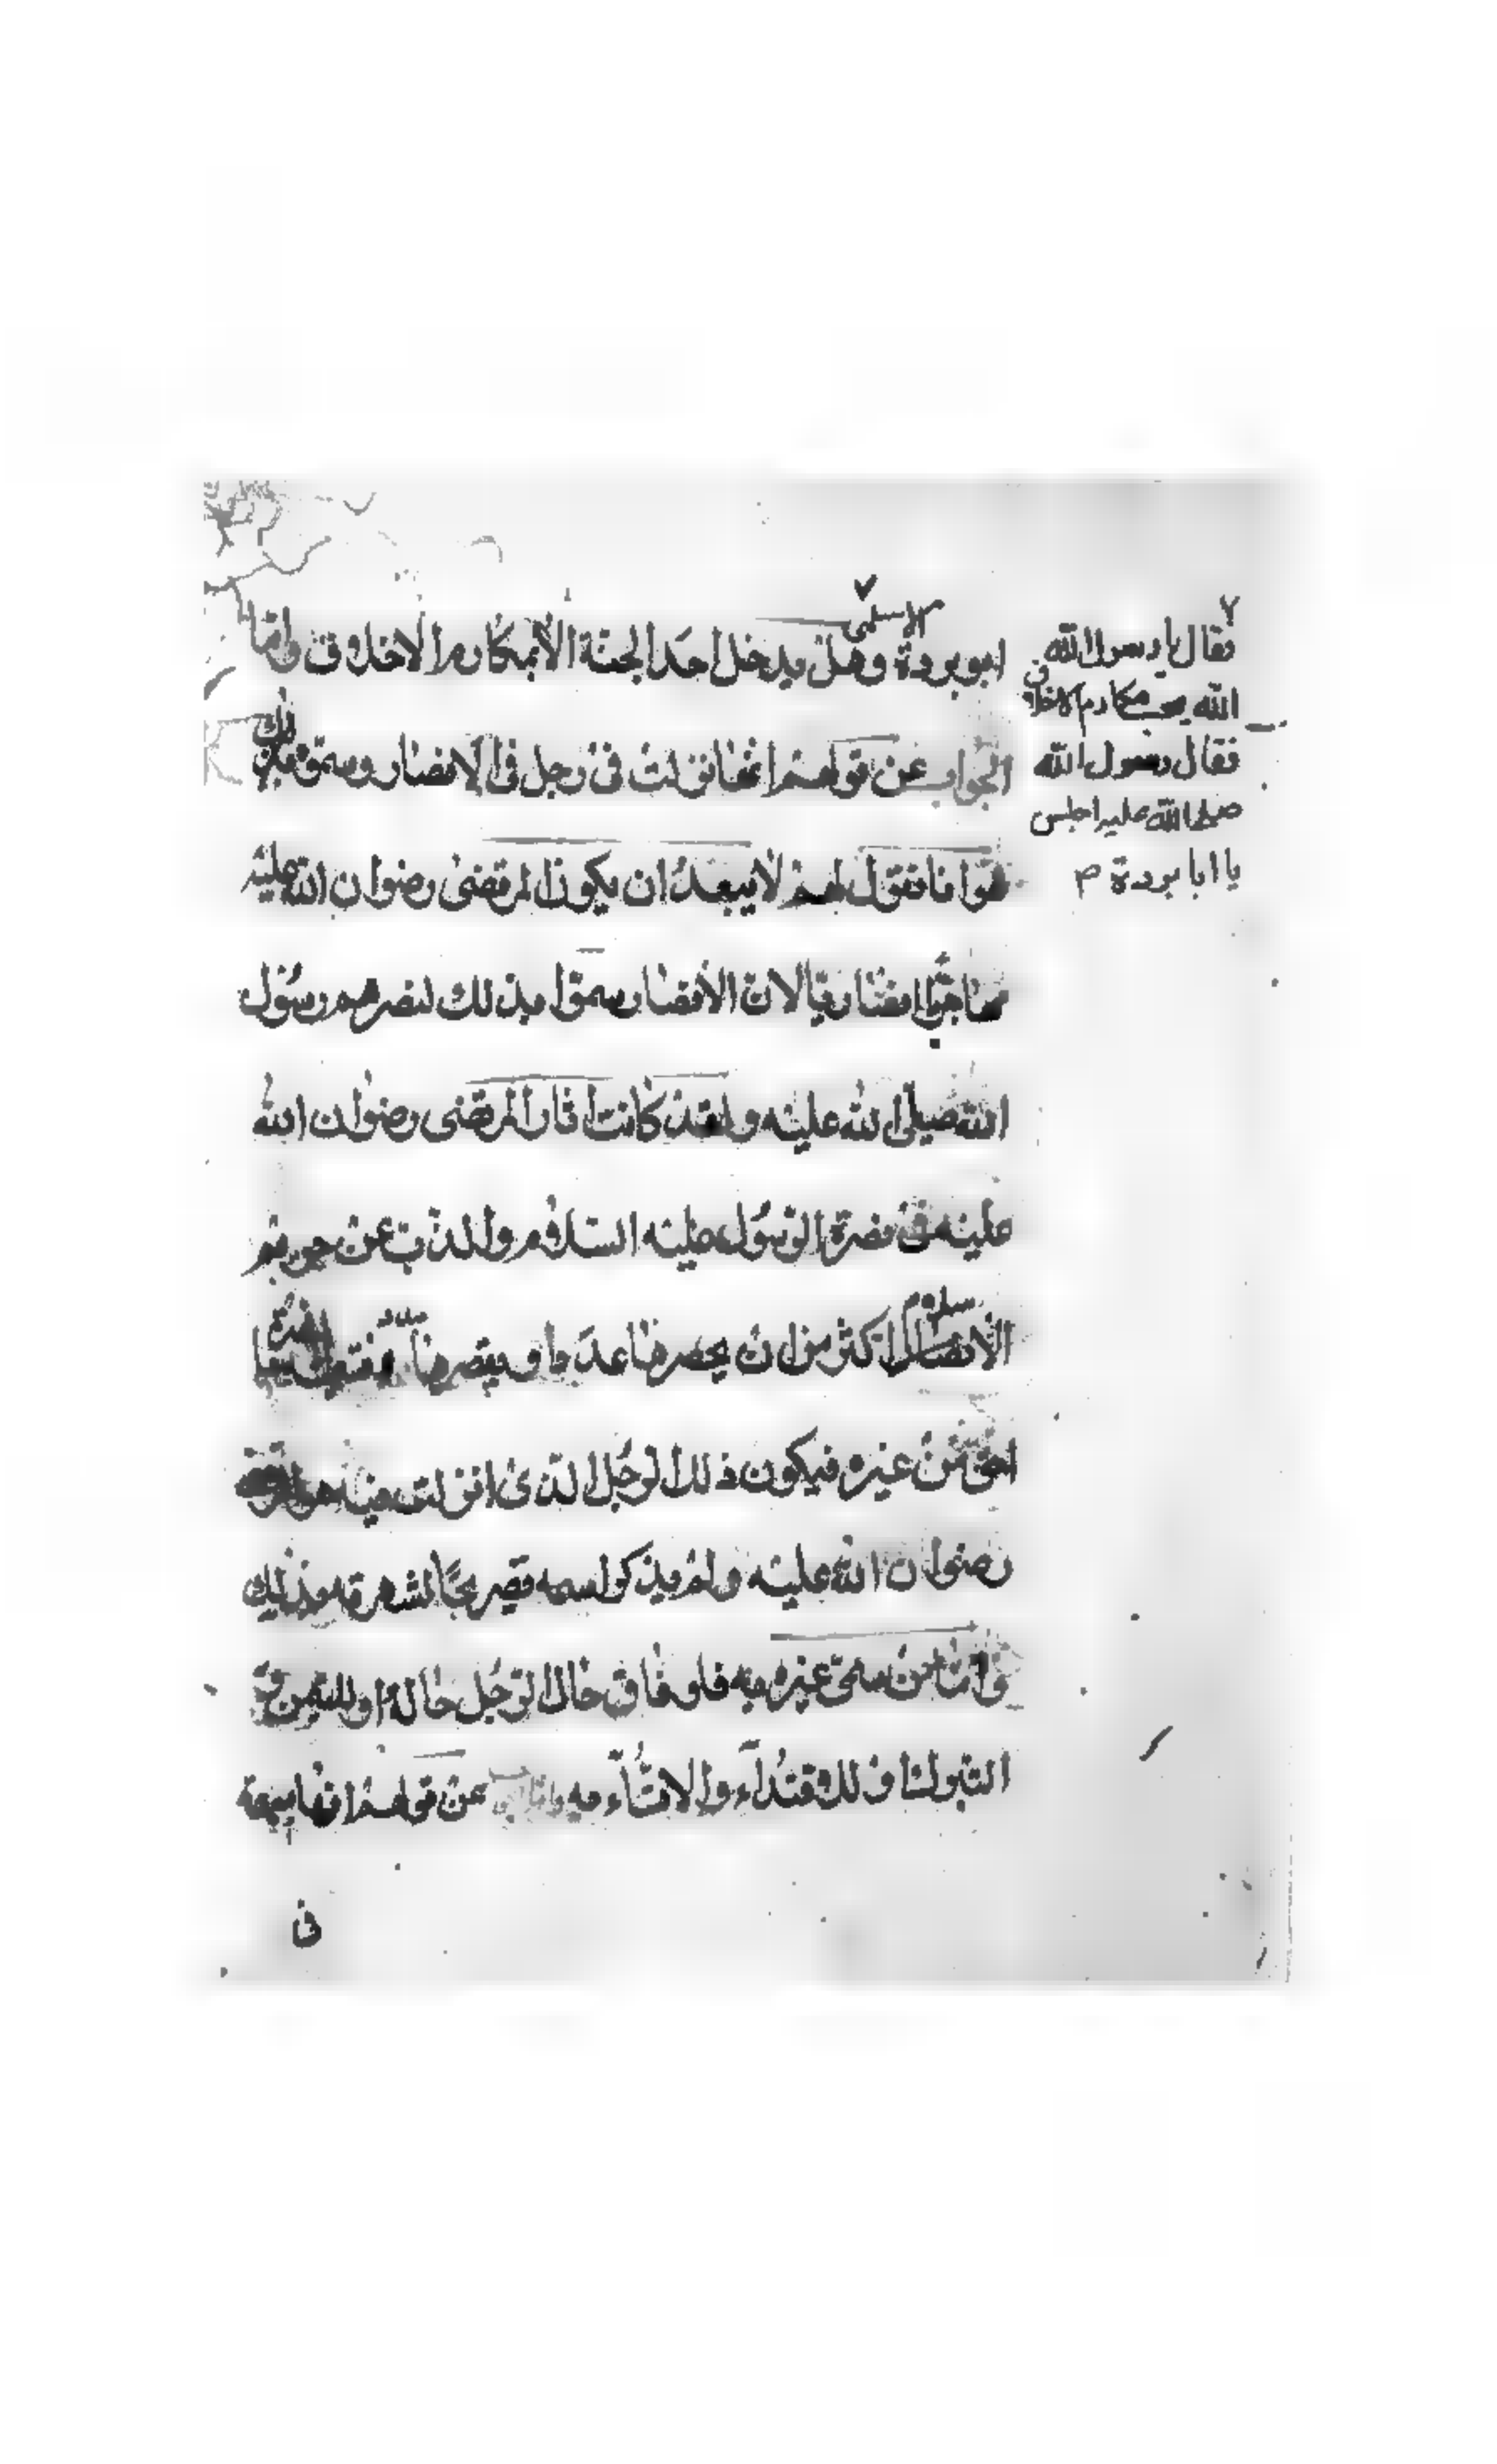 ابو بردة الاسلمي وهل يدخل احد الجنة الا بمكارم الاخلاق واما
الجواب عن قولهم انها نزلت في رجل في الانصار وسموه فلان
هو انا نقول لهم لا يبعد ان يكون المرتضى رضوان الله عليه
انصاريا لان الانصار سموا بذلك لنصرهم رسول
الله صلى الله عليه ولقد كانت اثار المرتضى رضوان الله
عليه في نصرة الرسول عليه السلام والذب عن حوزتهم
الاسلام اكثر من ان يحصرها عد
احق من غيره فيكون ذلك الرجل الذي انزلت فيه هو
رضوان الله عليه ولم يذكر اسمه تصريحا لشهرته وذلك
من سمى غيره به فلو فاق حال الرجل حاله
عن قولهم انها
في
فقال يا رسول الله
الله يحب مكارم الاخلاق
فقال رسول الله
صلى الله عليه اجلس
يا ابا بردة م